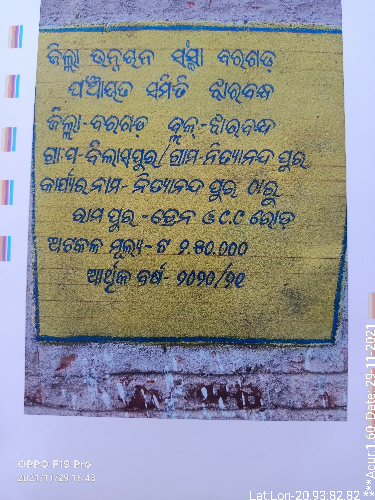 ଜିଲ୍ଲା ଉନ୍ନୟନ ସଂସ୍ଥା ବରଗଡ଼
ପଞ୍ଚାୟତ ସମିତି ଝାରବନ୍ଧ
ଜିଲ୍ଲା-ବରଗଡ଼ ବ୍ଲକ୍-ଝାରବନ୍ଧ
ଗ୍ରା.ପ-ବିଲାସପୁର/ଗ୍ରାମ-ନିତ୍ୟାନନ୍ଦ ପୁର
କାର୍ଯ୍ୟର ନାମ- ନିତ୍ୟାନନ୍ଦ ପୁର ଠାରୁ
ରାମପୁର -ଡ୍ରେନ ଓ ସି.ସି ରୋଡ଼
ଅଟକଳ ମୂଲ୍ୟ- ଟ ୨.୫୦.୦୦୦
ଆର୍ଥିକ ବର୍ଷ- ୨୦୨୦/୨୧
OPPO F19 Pro
2021/11/29 16:43
Lat Lon-20.93:82.82 *** Acur:1.60 Date: 29-11-2021